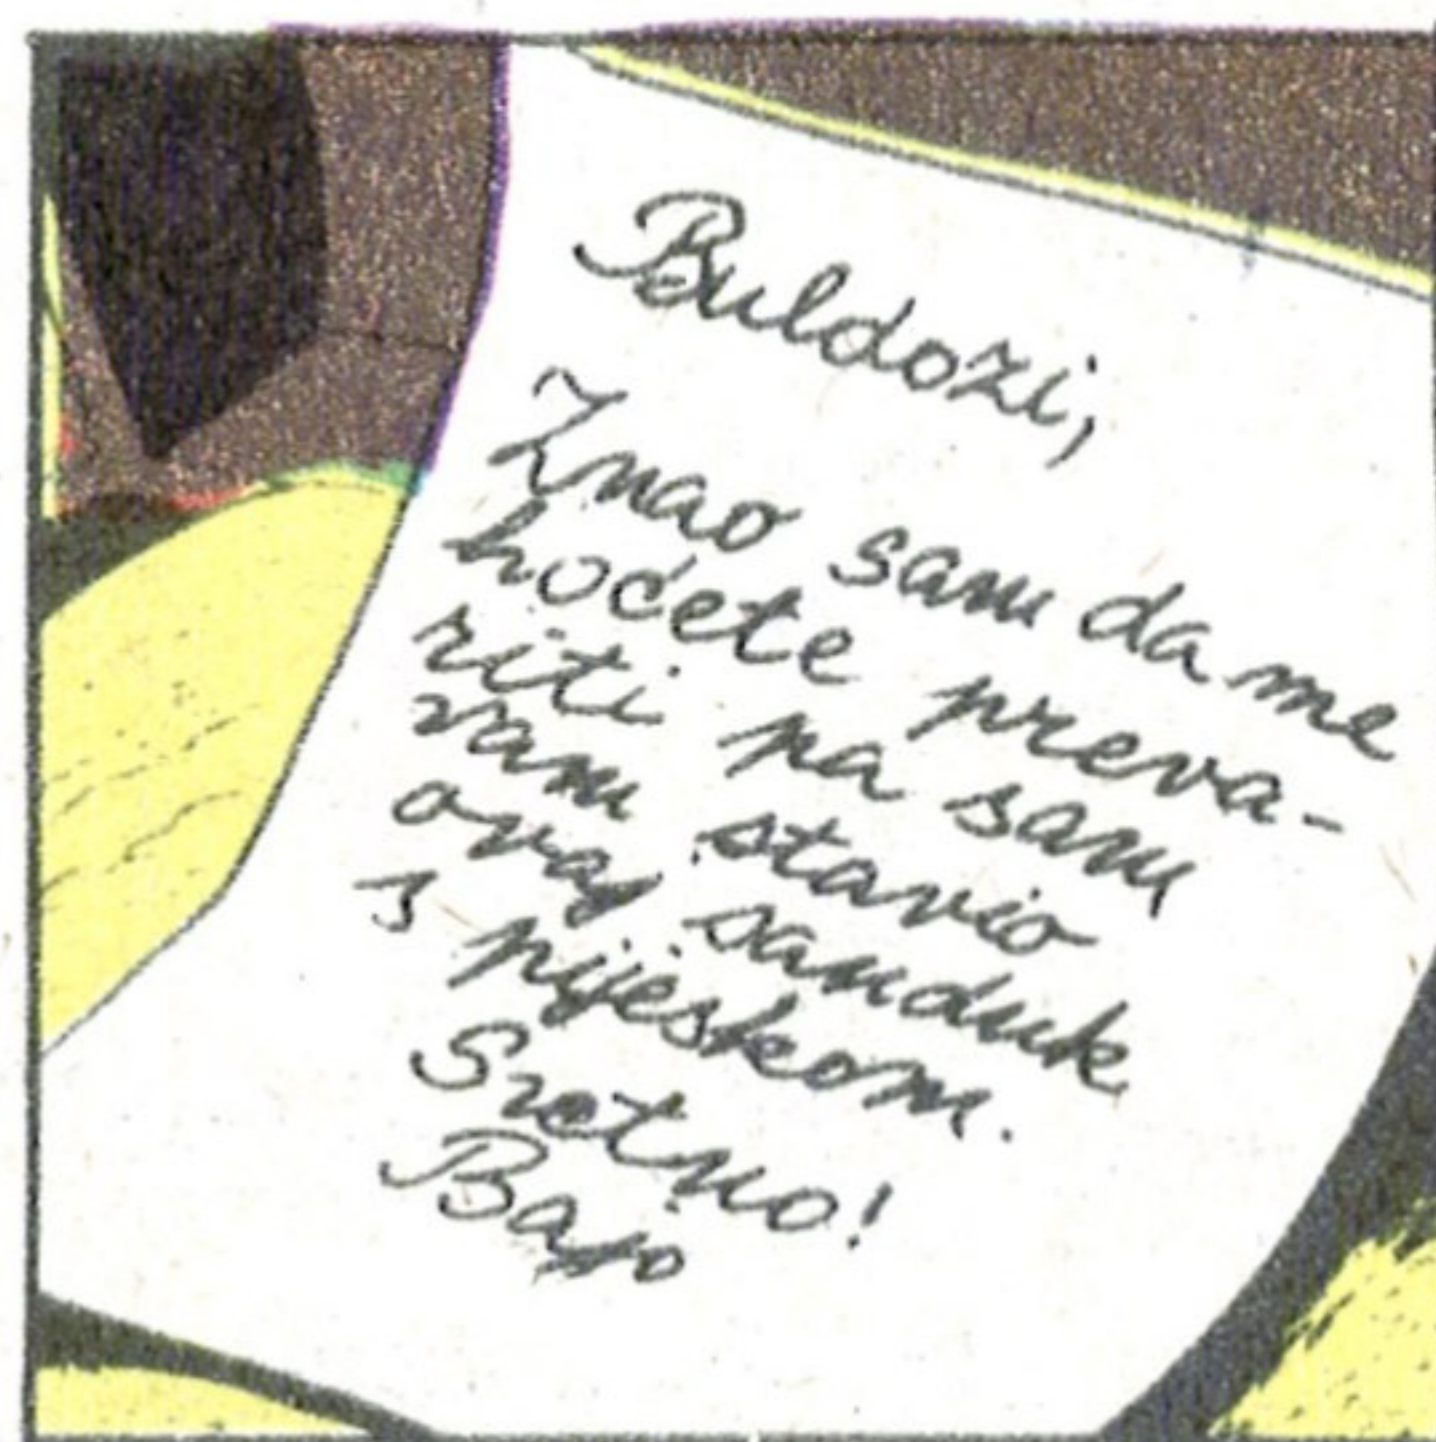 Buldozi,
Znao sam da me
hoćete preva-
riti pa sam
vam stavio
ovaj sanduk
s pijeskom.
Sretno!
Bajo